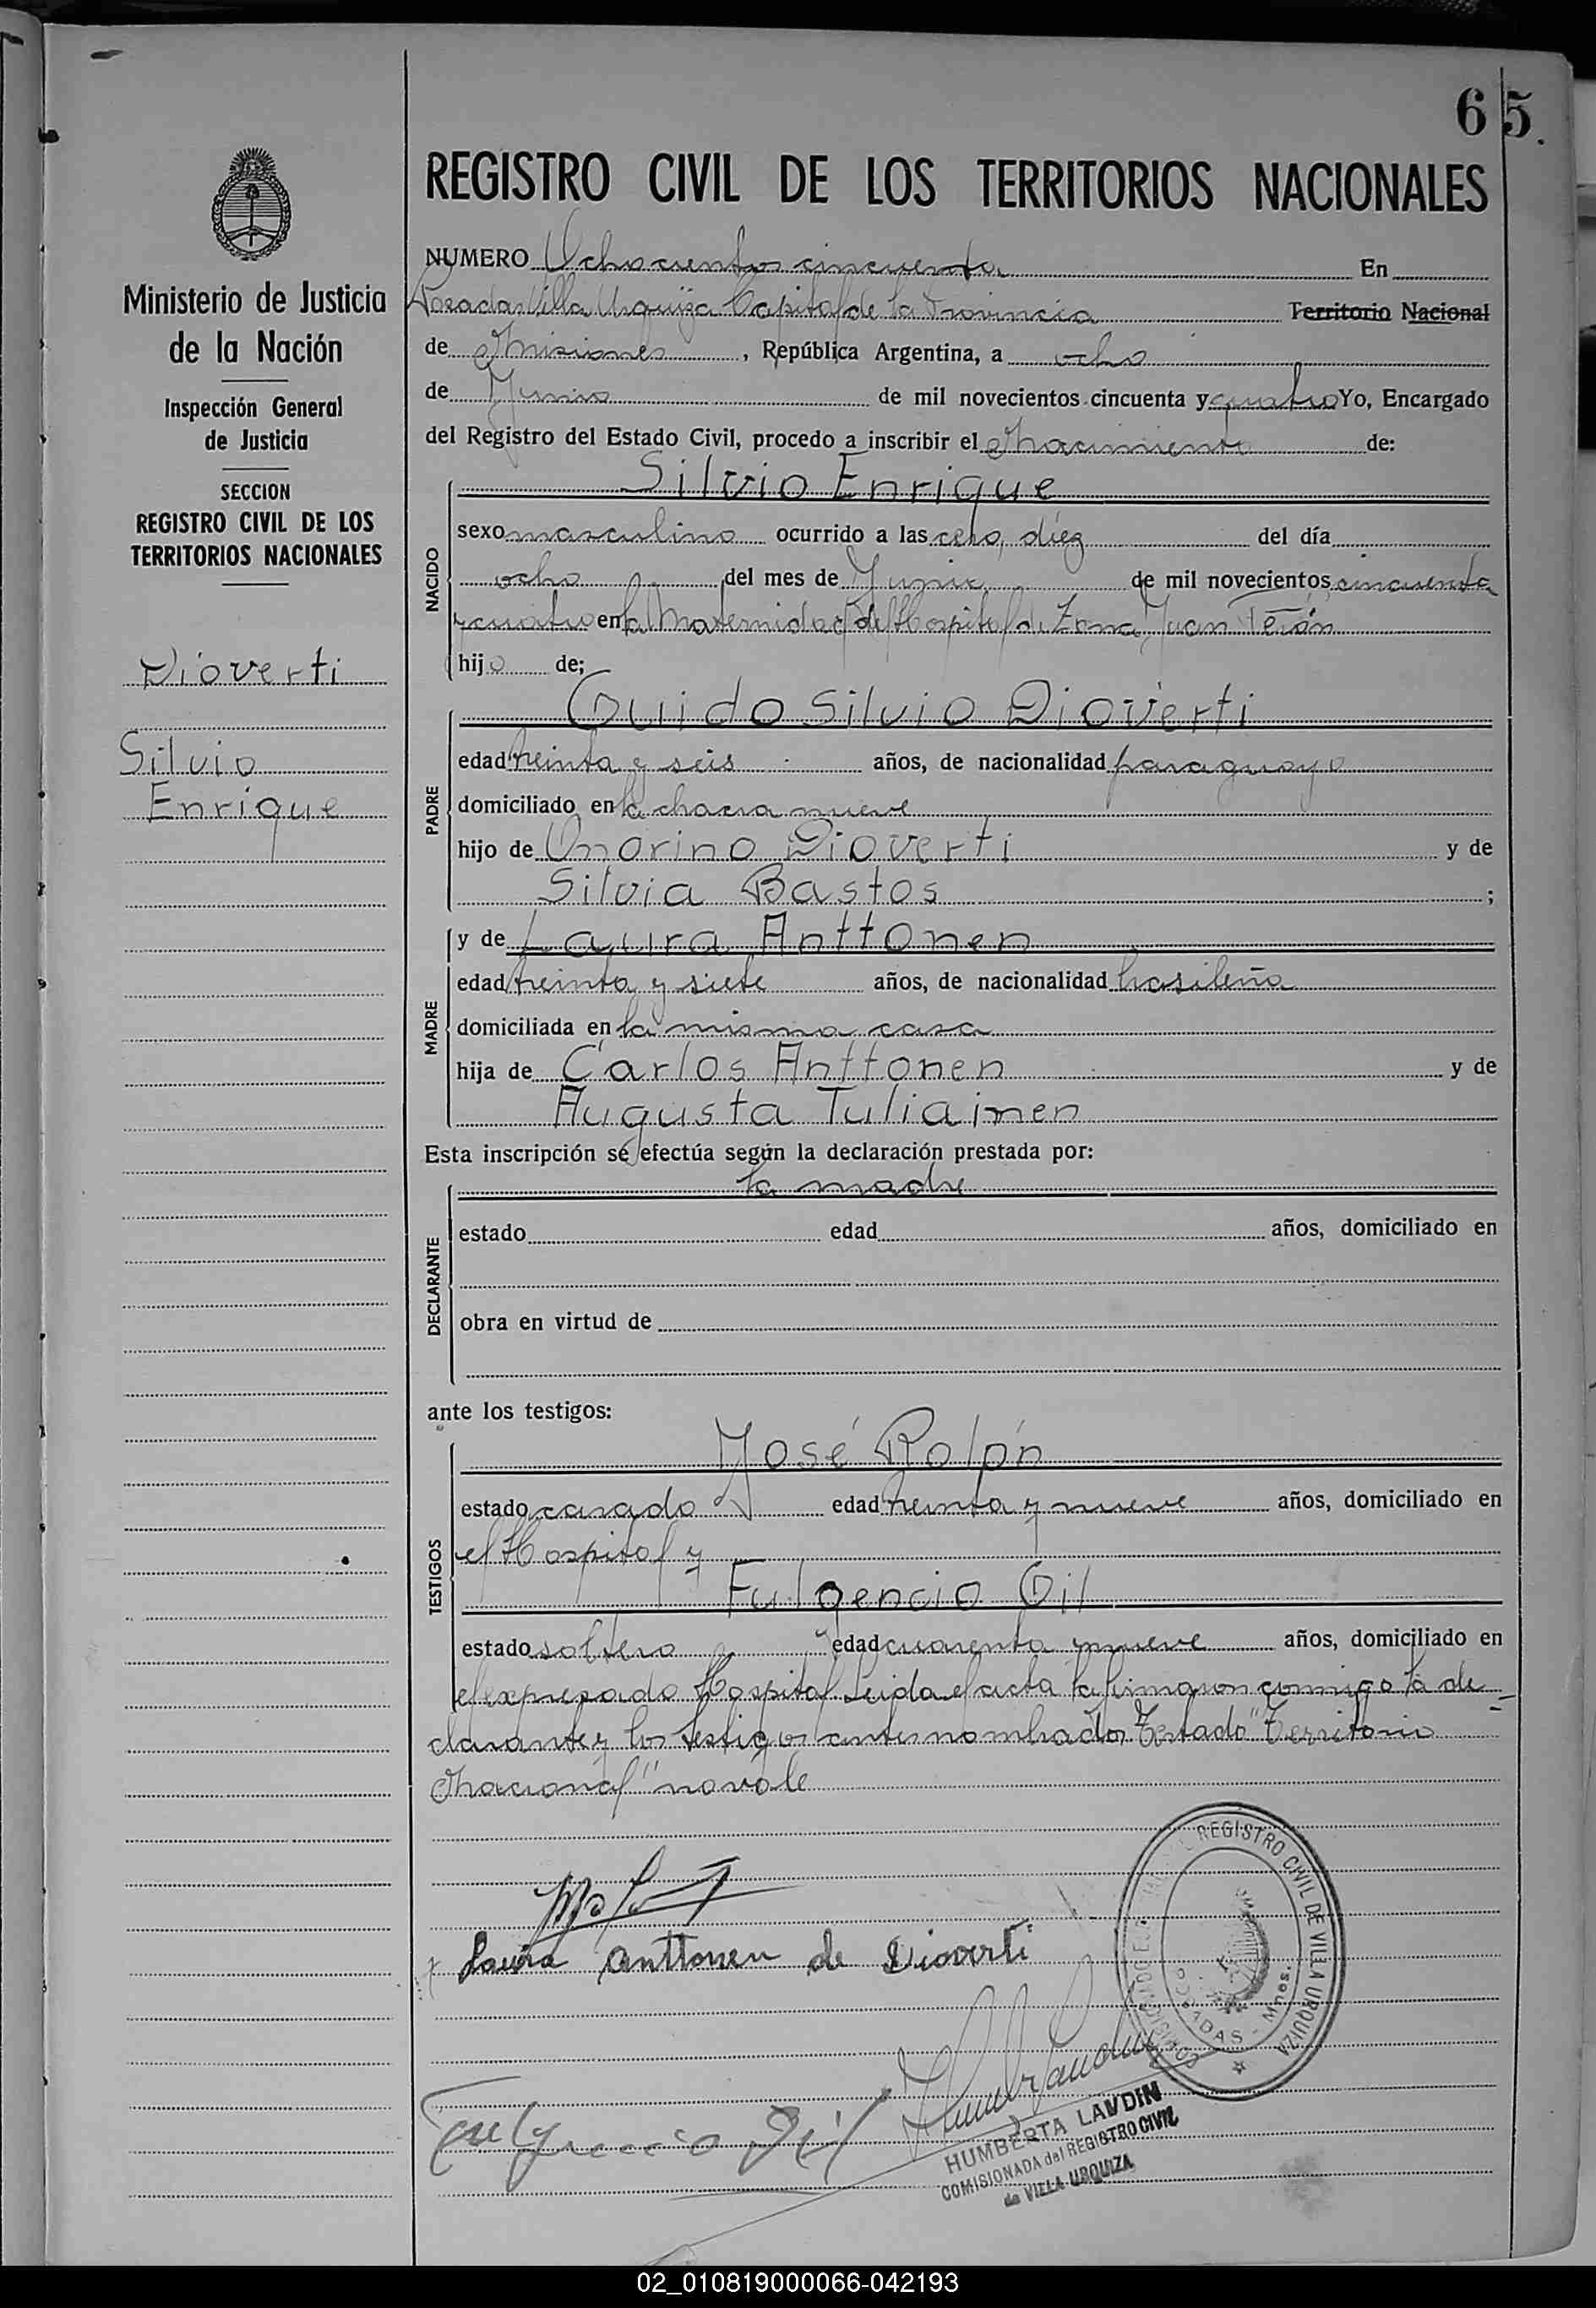 65.
REGISTRO CIVIL DE LOS TERRITORIOS NACIONALES
Ministerio de Justicia
de la Nación
Inspección General
de Justicia
SECCION
REGISTRO CIVIL DE LOS
TERRITORIOS NACIONALES
Dioverti
Silvio
Enrique
NUMERO Ochocientos cincuenta En
Posadas Villa Urquiza Capital de la Provincia Territorio Nacional
de Misiones, República Argentina, a ocho
de Junio de mil novecientos cincuenta y cuatro Yo, Encargado
del Registro del Estado Civil, procedo a inscribir el Nacimiento de:
Silvio Enrique
NACIDO
sexo masculino ocurrido a las cero, diez del día
ocho del mes de Junio de mil novecientos cincuenta
y cuatro en la Maternidad del Hospital de Zona Juan Terán
hijo de;
Guido Silvio Dioverti
PADRE
edad treinta y seis años, de nacionalidad paraguayo
domiciliado en la chacra nueve
hijo de Onorino Dioverti y de
Silvia Bastos ;
y de Laura Anttonen
MADRE
edad treinta y siete años, de nacionalidad brasileña
domiciliada en la misma casa
hija de Carlos Anttonen y de
Augusta Tuliainen
Esta inscripción se efectúa según la declaración prestada por:
la madre
DECLARANTE
estado edad años, domiciliado en
obra en virtud de
ante los testigos:
José Rolón
TESTIGOS
estado casado edad treinta y nueve años, domiciliado en
el Hospital y
Fulgencio Gil
estado soltero edad cuarenta y nueve años, domiciliado en
el expresado Hospital Leida el acta la firmaron conmigo la de
clarante y los testigos antes nombrados Testado "Territorio
Nacional" no vale
Laura Anttonen de Dioverti
REGISTRO CIVIL DE VILLA URQUIZA
POSADAS - Mnes.
Fulgencio Gil
HUMBERTA LAVDIN
COMISIONADA del REGISTRO CIVIL
de VILLA URQUIZA
02_010819000066-042193